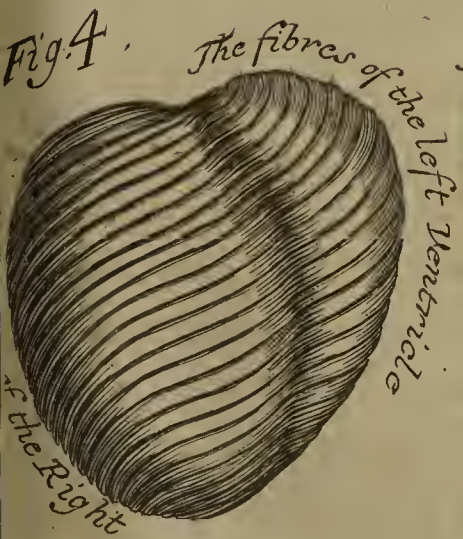 Fig. 4.
The fibres of the left Ventricle
of the Right